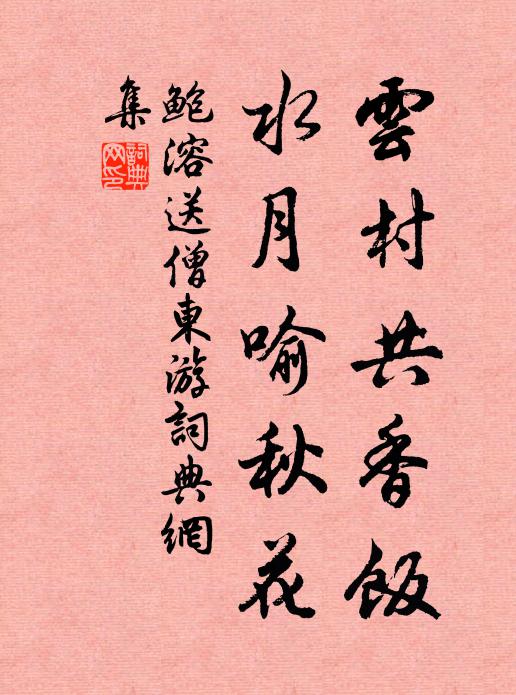 雲村共香飯
水月喻秋花
鮑溶送僧東游詞典網
集
詞典
网印